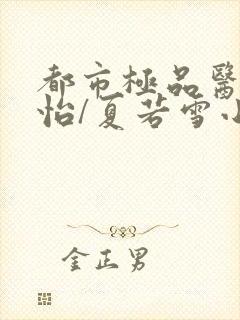 都市極品醫
怡/夏若雪小
金正男